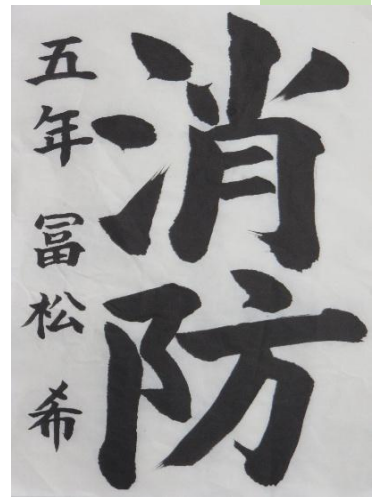 消防
五年 冨松 希